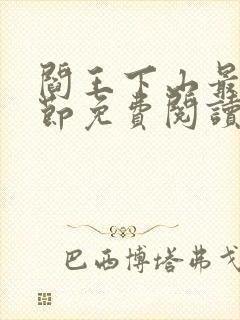 閻王下山最
節免費閱讀
巴西博塔弗戈